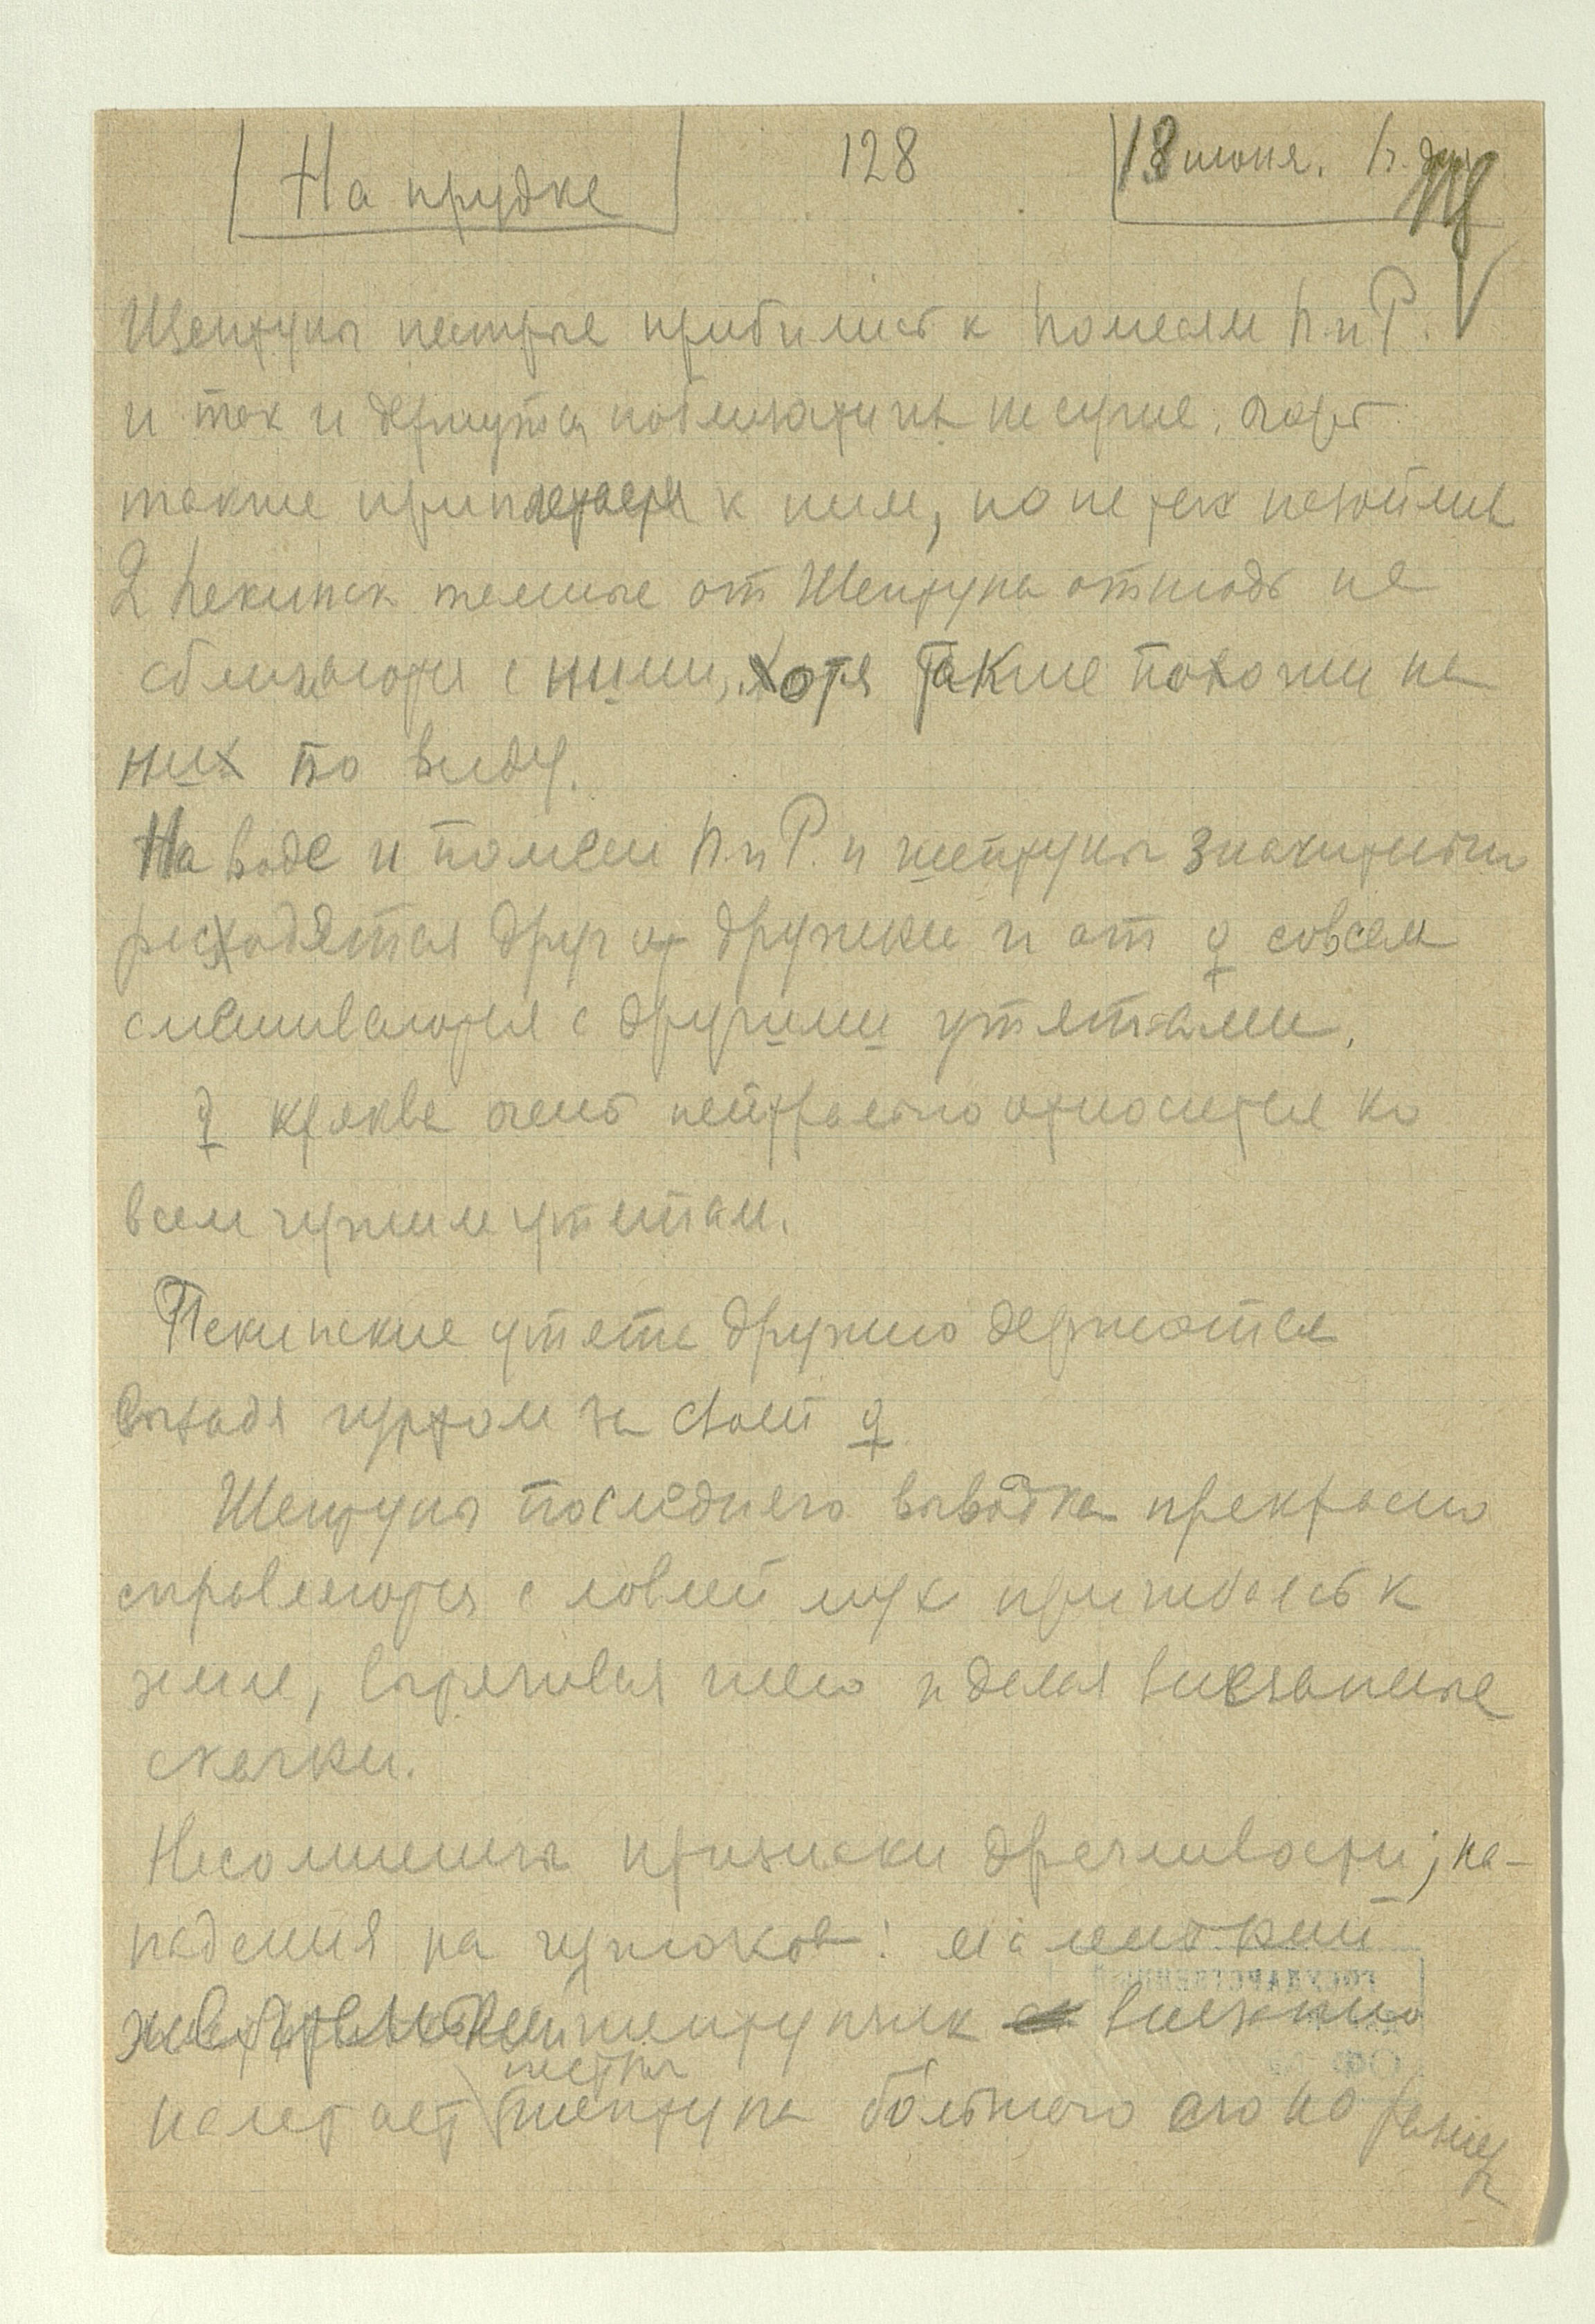 На прудке
128
18 июня. 1 ч. дня
Шептуны пестрые прибились к помесям П и Р.
и так и держутся поблизости на суше,
также к ним, но не так
2 Пекинск темные от Шептуна отнюдь не
сближаются с ними, хотя также похожи на
них по виду.
На воде и помеси П. и Р. и шептуны значительно
расходятся друг от дружки и от ♀ совсем
смешиваются с другими утятами.
♀ кряква очень нейтрально относится ко
всем чужим утятам.
Пекинские утята дружно держатся
выходя гуртом за своей ♀
Шептуны последнего выводка прекрасно
справляются с ловлей мух пригибаясь к
земле, вытягивая шею и делая внезапные
скачки.
Несомненны признаки драчливости; на-
падения на чужаков: маленький
шептунчик внезапно
налетает пестрого
шептуна большего его по разме